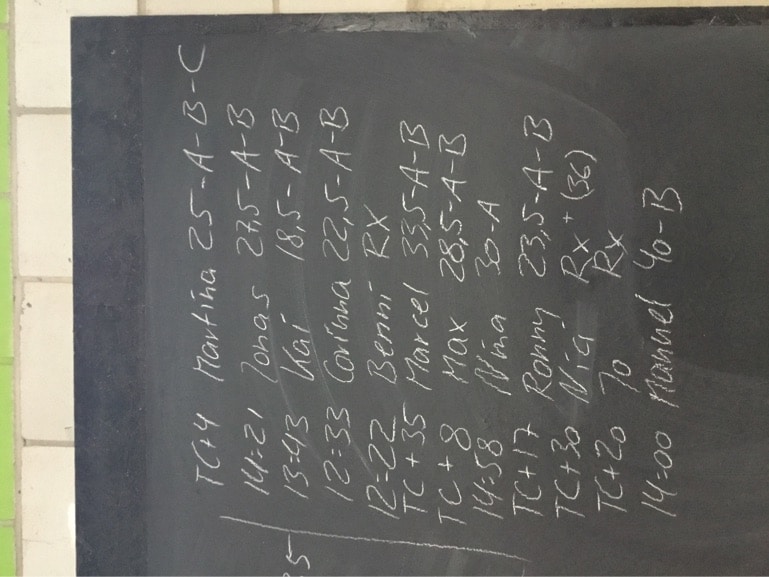 TC+4 Martina 25-A-B-C
14:21 Jonas 27,5-A-B
13:43 Kai 18,5-A-B
12:33 Corinna 22,5-A-B
12:22 Benni RX
TC+35 Marcel 33,5-A-B
TC+8 Max 28,5-A-B
14:58 Nina 30-A
TC+17 Ronny 23,5-A-B
TC+30 Nig Rx+(36)
TC+20 Jo Rx
14:00 Manuel 40-B